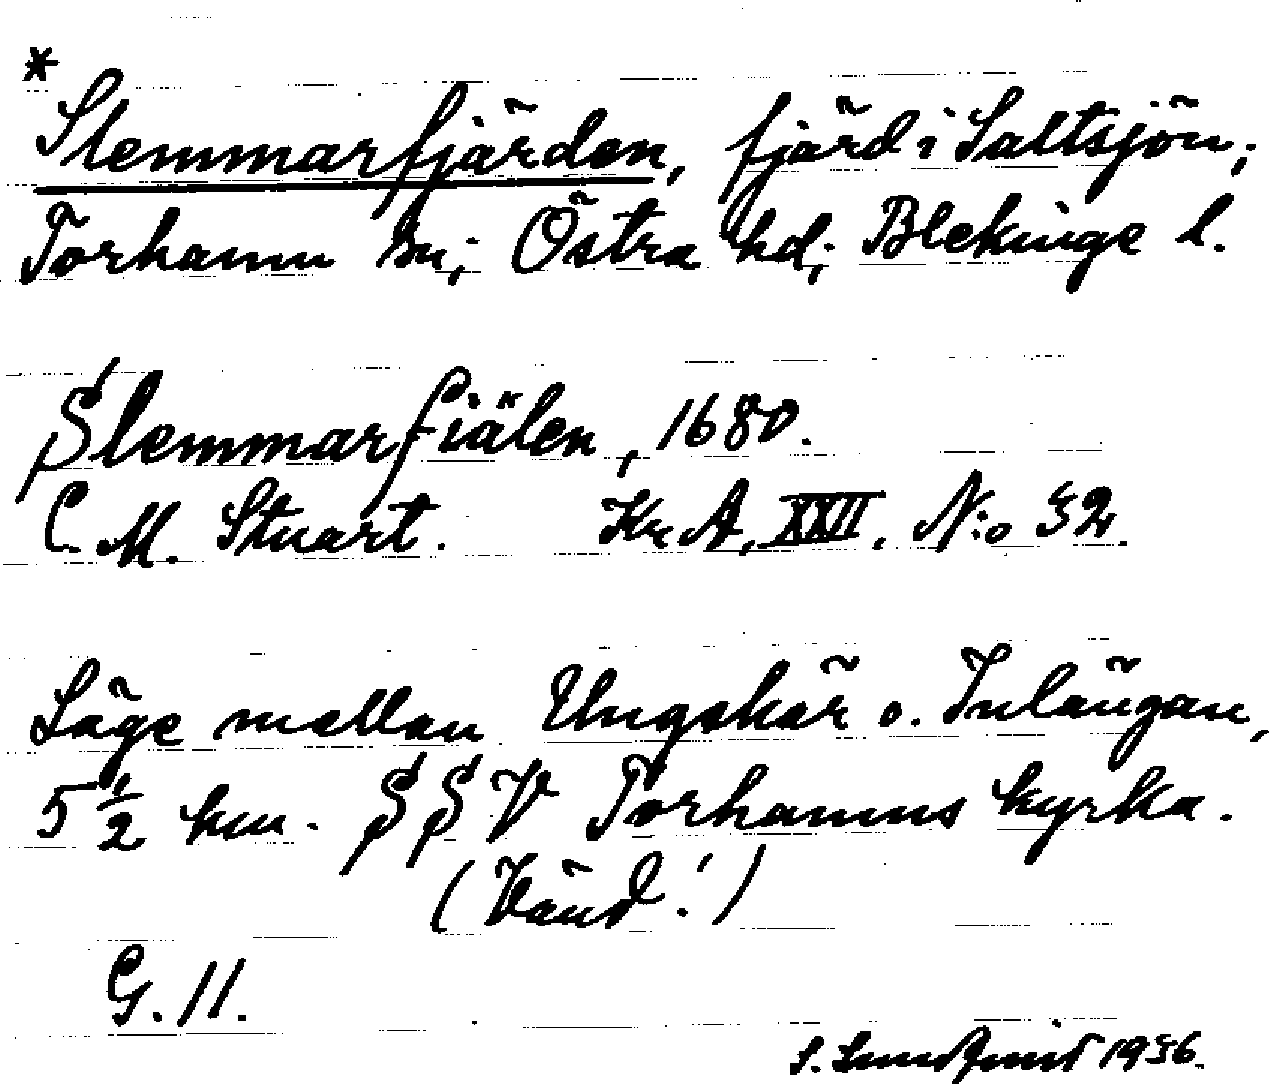 *
Slemmarfjärden, fjärd i Saltsjön;
Torhamn sn; Östra hd; Blekinge l.
Slemmarfiälen, 1680.
C. M. Stuart. Kr. A, XXII, N:o 32.
Läge mellan Ungskär o. Inlängan,
5 1/2 km. SSV Torhamns kyrka.
(Vänd!)
G. 11.
S. Lundqvist 1936.